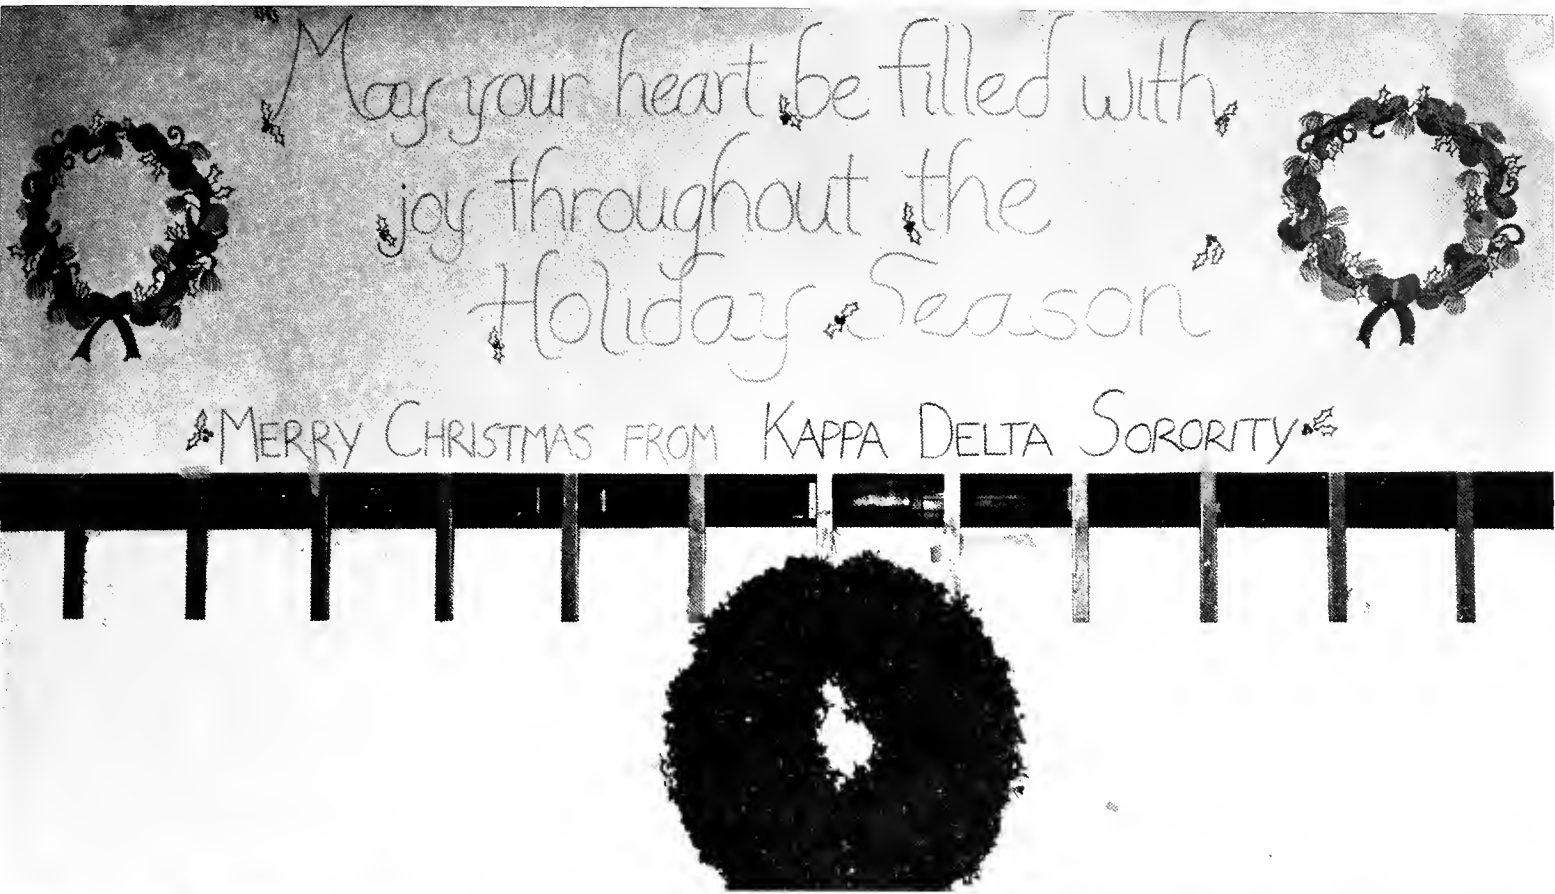 May your heart be filled with
joy throughout the
Holiday Season
MERRY CHRISTMAS FROM KAPPA DELTA SORORITY